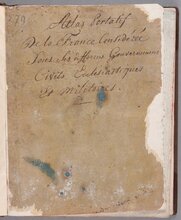 79
Atlas Portatif
De la France Considérée
Sous Les differens Gouvernemens
Civils Ecclesiastiques
Et Militaires.